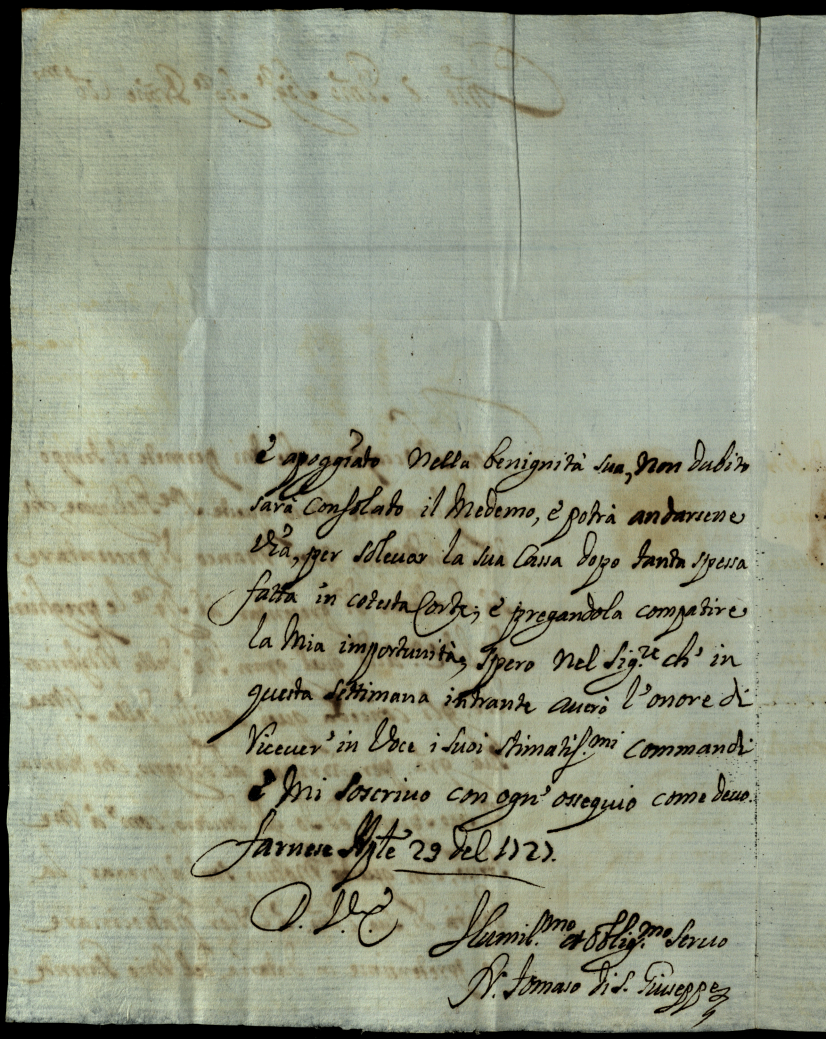 è apoggiato nella benignità sua, non dubito
sarà Consolato il Medemo, e potrà andarsene
via, per solevar la sua Cassa dopo tanta spessa
fatta in cotesta Corte; e pregandola compatire
la Mia importunità, spero nel Sig.re ch' in
questa settimana intrante averò l'onore di
ricever' in Voce i suoi stimatis.mi commandi
e Mi soscrivo con ogn' ossequio come devo.
Farnese 29 del 1727.
D. V. E.
Humil.mo et Oblig.mo Servo
Tomaso di S. Giuseppe